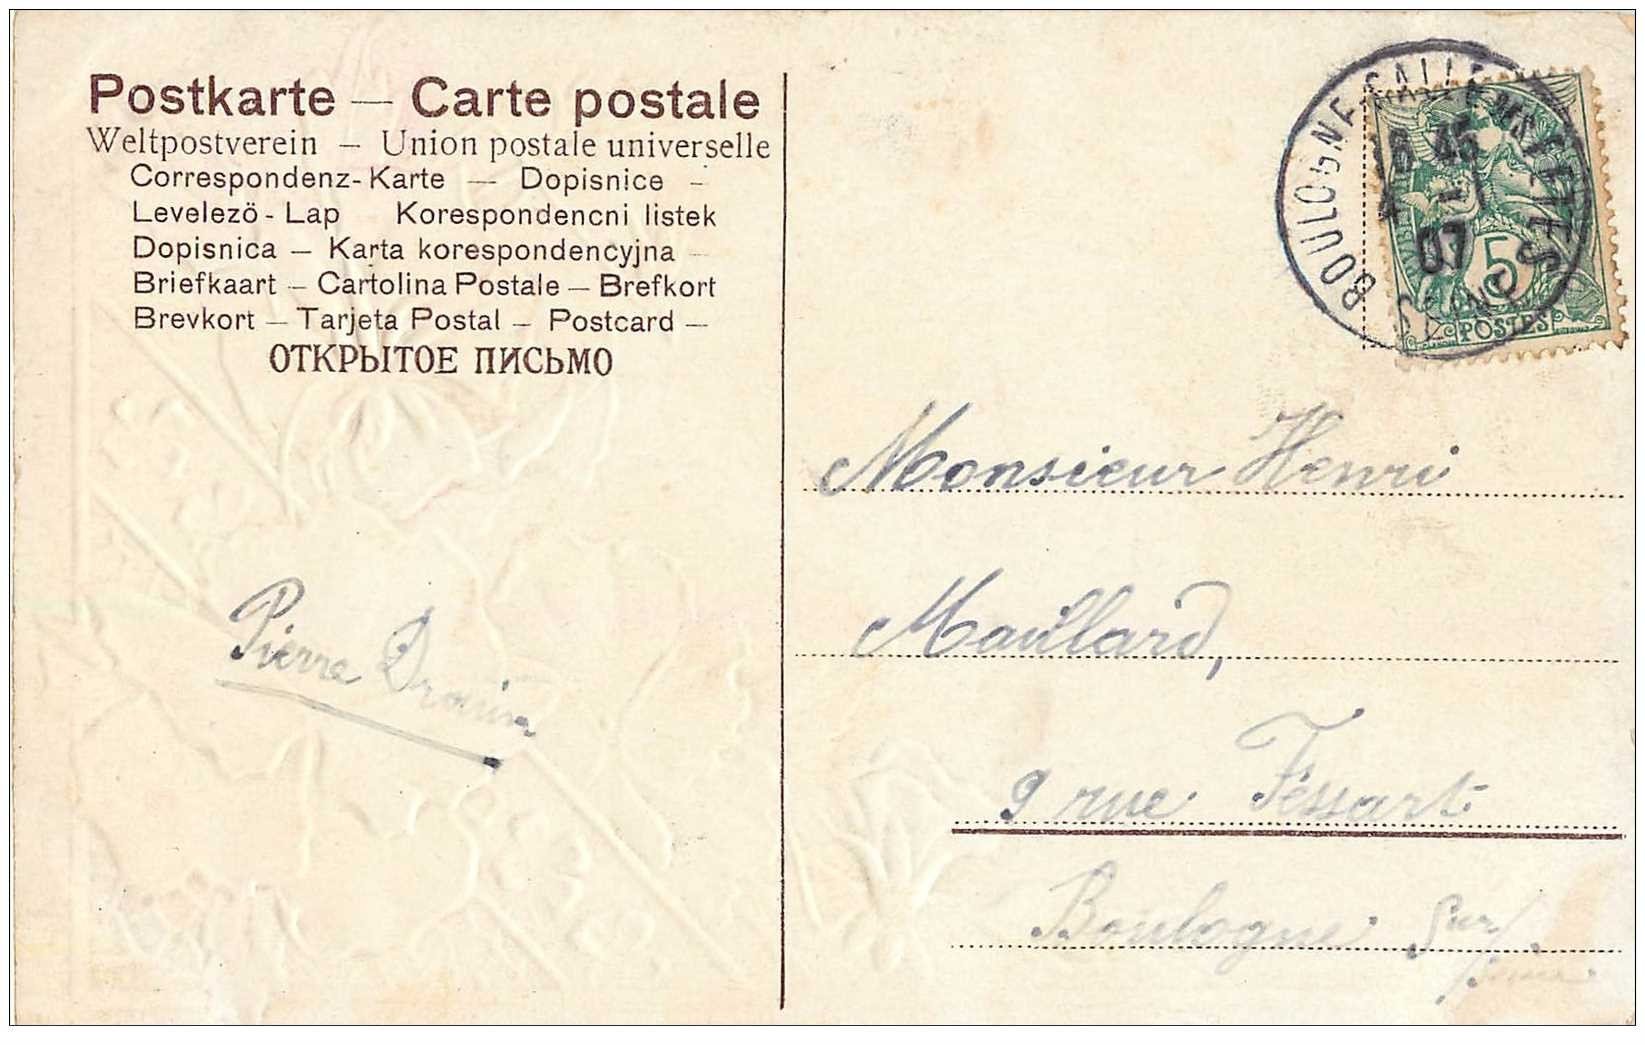 Postkarte — Carte postale
Weltpostverein — Union postale universelle
Correspondenz-Karte — Dopisnice –
Levelezö-Lap Korespondencni listek
Dopisnica — Karta korespondencyjna –
Briefkaart — Cartolina Postale — Brefkort
Brevkort — Tarjeta Postal — Postcard —
ОТКРЫТОЕ ПИСЬМО
Pierre Drouin
BOULOGNE
SEINE
07
5
POSTES
Monsieur Henri
Maillard,
9 rue Fessart
Boulogne sur
Seine